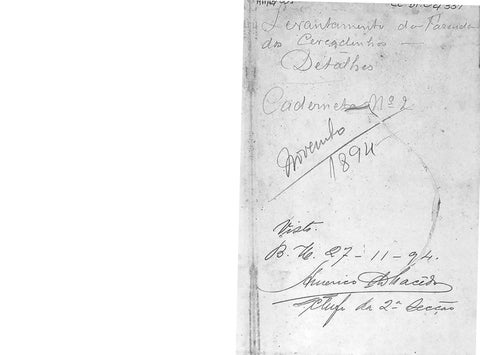 Levantamento da Fazenda
dos Cercadinhos —
Detalhes
Caderneta Nº 2
Novembro
1894
Visto.
B. H. 27-11-94.
Americo de Macêdo
Chefe da 2ª Secção